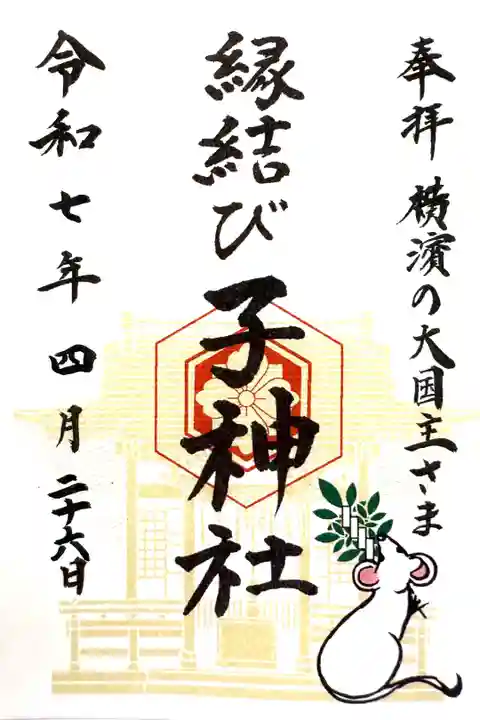 奉拝 横濱の大国主さま
縁結び 子神社
令和七年四月二十六日